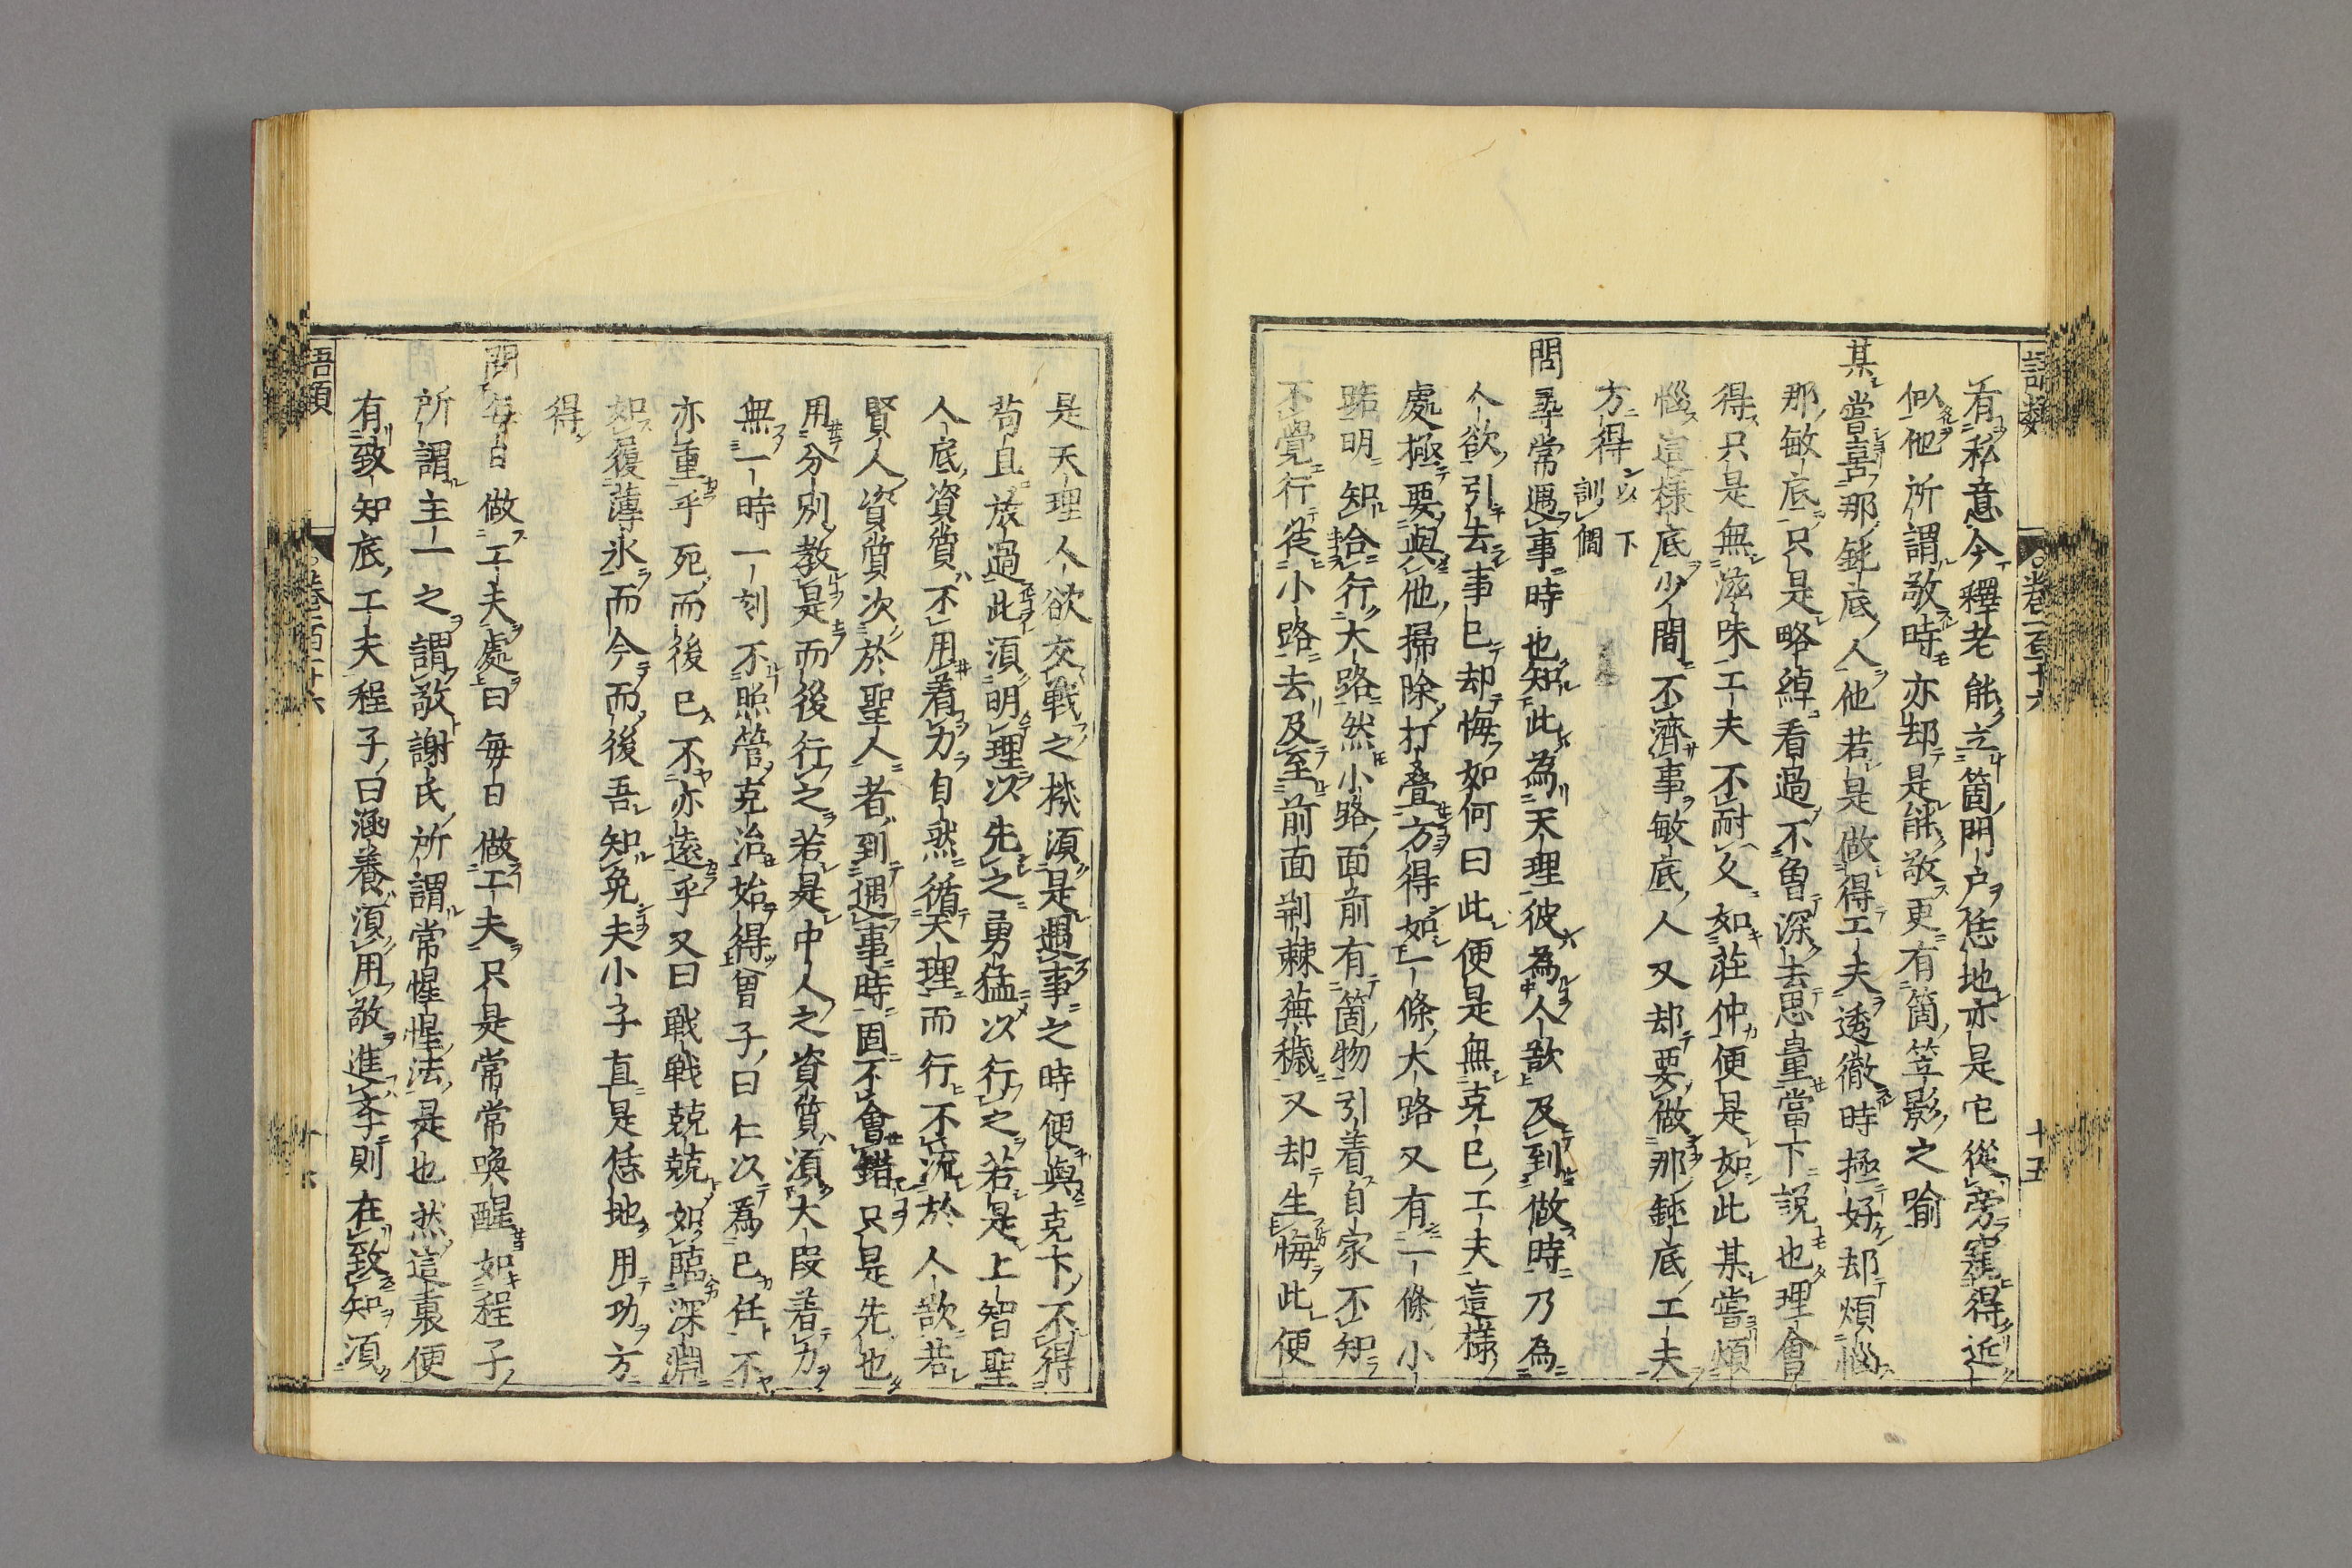 語類 卷一百十六 十五
有私意今釋老能立箇門戶恁地亦是它從旁窺得近
似他所謂敬時亦却是能敬更有箇笠影之喻
某嘗喜那鈍底人他若是做得工夫透徹時極好却煩惱
那敏底只是略綽看過不曾深去思量當下說也理會
得只是無滋味工夫不耐久如莊仲便是如此某嘗煩
惱這樣底少間不濟事敏底人又却要做那鈍底工夫
方得 以下訓僩
問尋常遇事時也知此為天理彼為人欲及到做時乃為
人欲引去事已却悔如何曰此便是無克己工夫這樣
處極要與他掃除打疊方得如一條大路又有一條小
路明知合行大路然小路面前有箇物引着自家不知
不覺行從小路去及至前面荆棘蕪穢又却生悔此便
是天理人欲交戰之機須是遇事之時便與克下不得
苟且放過此須明理以先之勇猛以行之若是上智聖
人底資質不用着力自然循天理而行不流於人欲若
賢人資質次於聖人者到遇事時固不會錯只是先也
用分別教是而後行之若是中人之資質須大段着力
無一時一刻不照管克治始得曾子曰仁以為己任不
亦重乎死而後已不亦遠乎又曰戰戰兢兢如臨深淵
如履薄氷而今而後吾知免夫小子直是恁地用功方
得
問每日做工夫處曰每日做工夫只是常常喚醒如程子
所謂主一之謂敬謝氏所謂常惺惺法是也然這裏便
有致知底工夫程子曰涵養須用敬進斈則在致知須
語類 卷一百十六